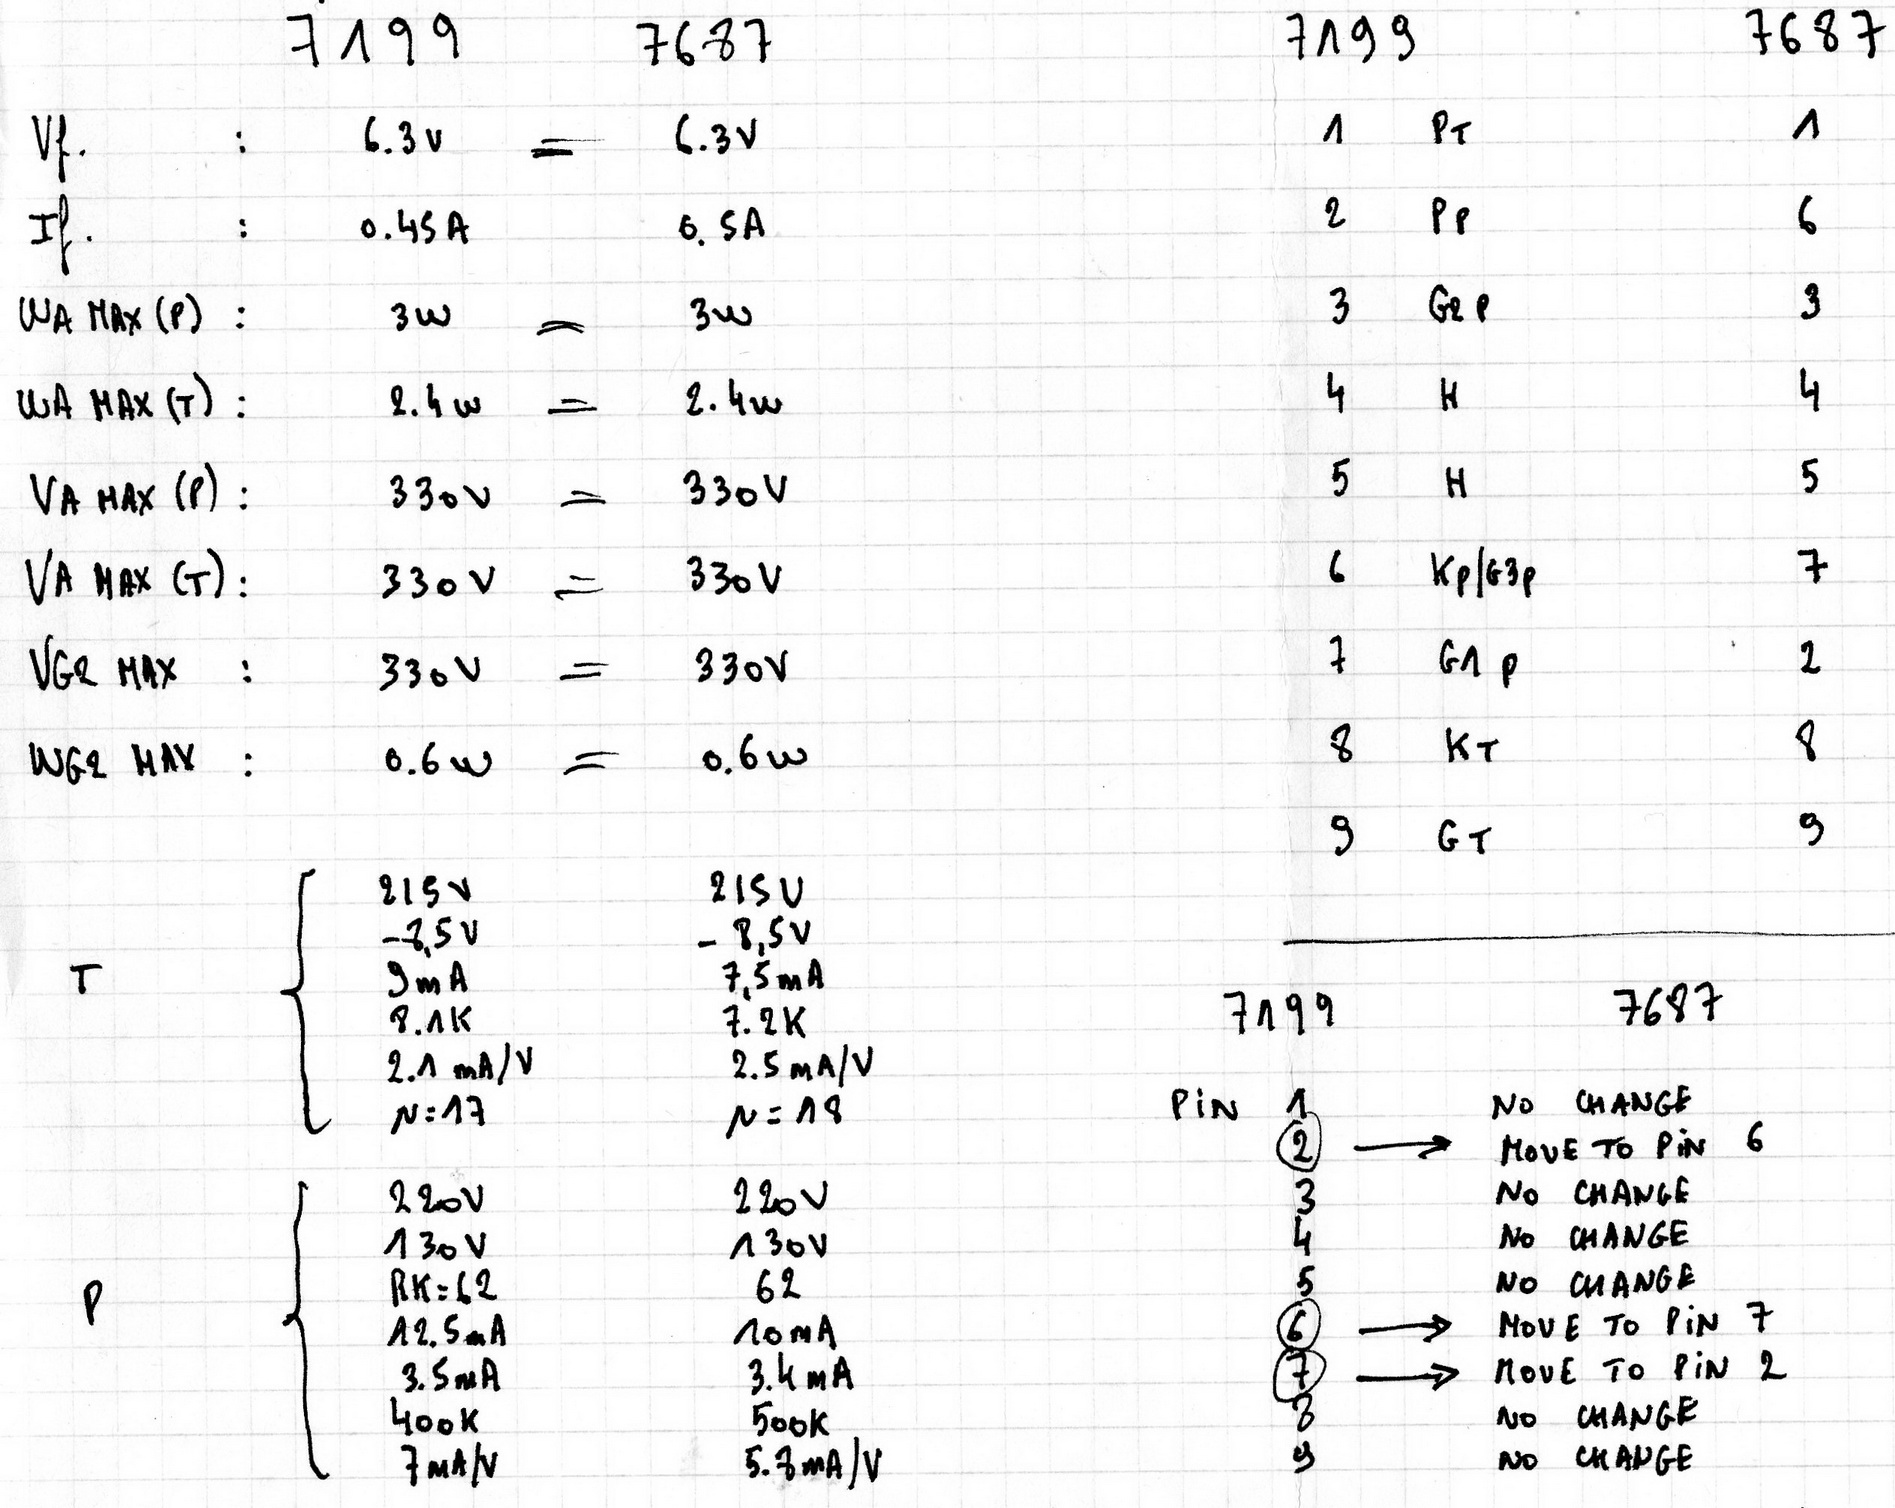 7199 7687
Vf. : 6.3V = 6.3V
If. : 0.45A 0.5A
WA MAX (P) : 3W = 3W
WA MAX (T) : 2.4W = 2.4W
VA MAX (P) : 330V = 330V
VA MAX (T) : 330V = 330V
VG2 MAX : 330V = 330V
WG2 MAX : 0.6W = 0.6W
T
215V 215V
-8,5V -8,5V
9mA 7,5mA
8.1K 7.2K
2.1 mA/V 2.5mA/V
µ=17 µ=18
P
220V 220V
130V 130V
RK=62 62
12.5mA 10mA
3.5mA 3.4mA
400K 500K
7mA/V 5.8mA/V
7199 7687
1 PT 1
2 PP 6
3 G2P 3
4 H 4
5 H 5
6 KP/G3P 7
7 G1P 2
8 KT 8
9 GT 9
7199 7687
PiN 1 NO CHANGE
2 → MOVE TO PiN 6
3 NO CHANGE
4 NO CHANGE
5 NO CHANGE
6 → MOVE TO PiN 7
7 → MOVE TO PiN 2
8 NO CHANGE
9 NO CHANGE